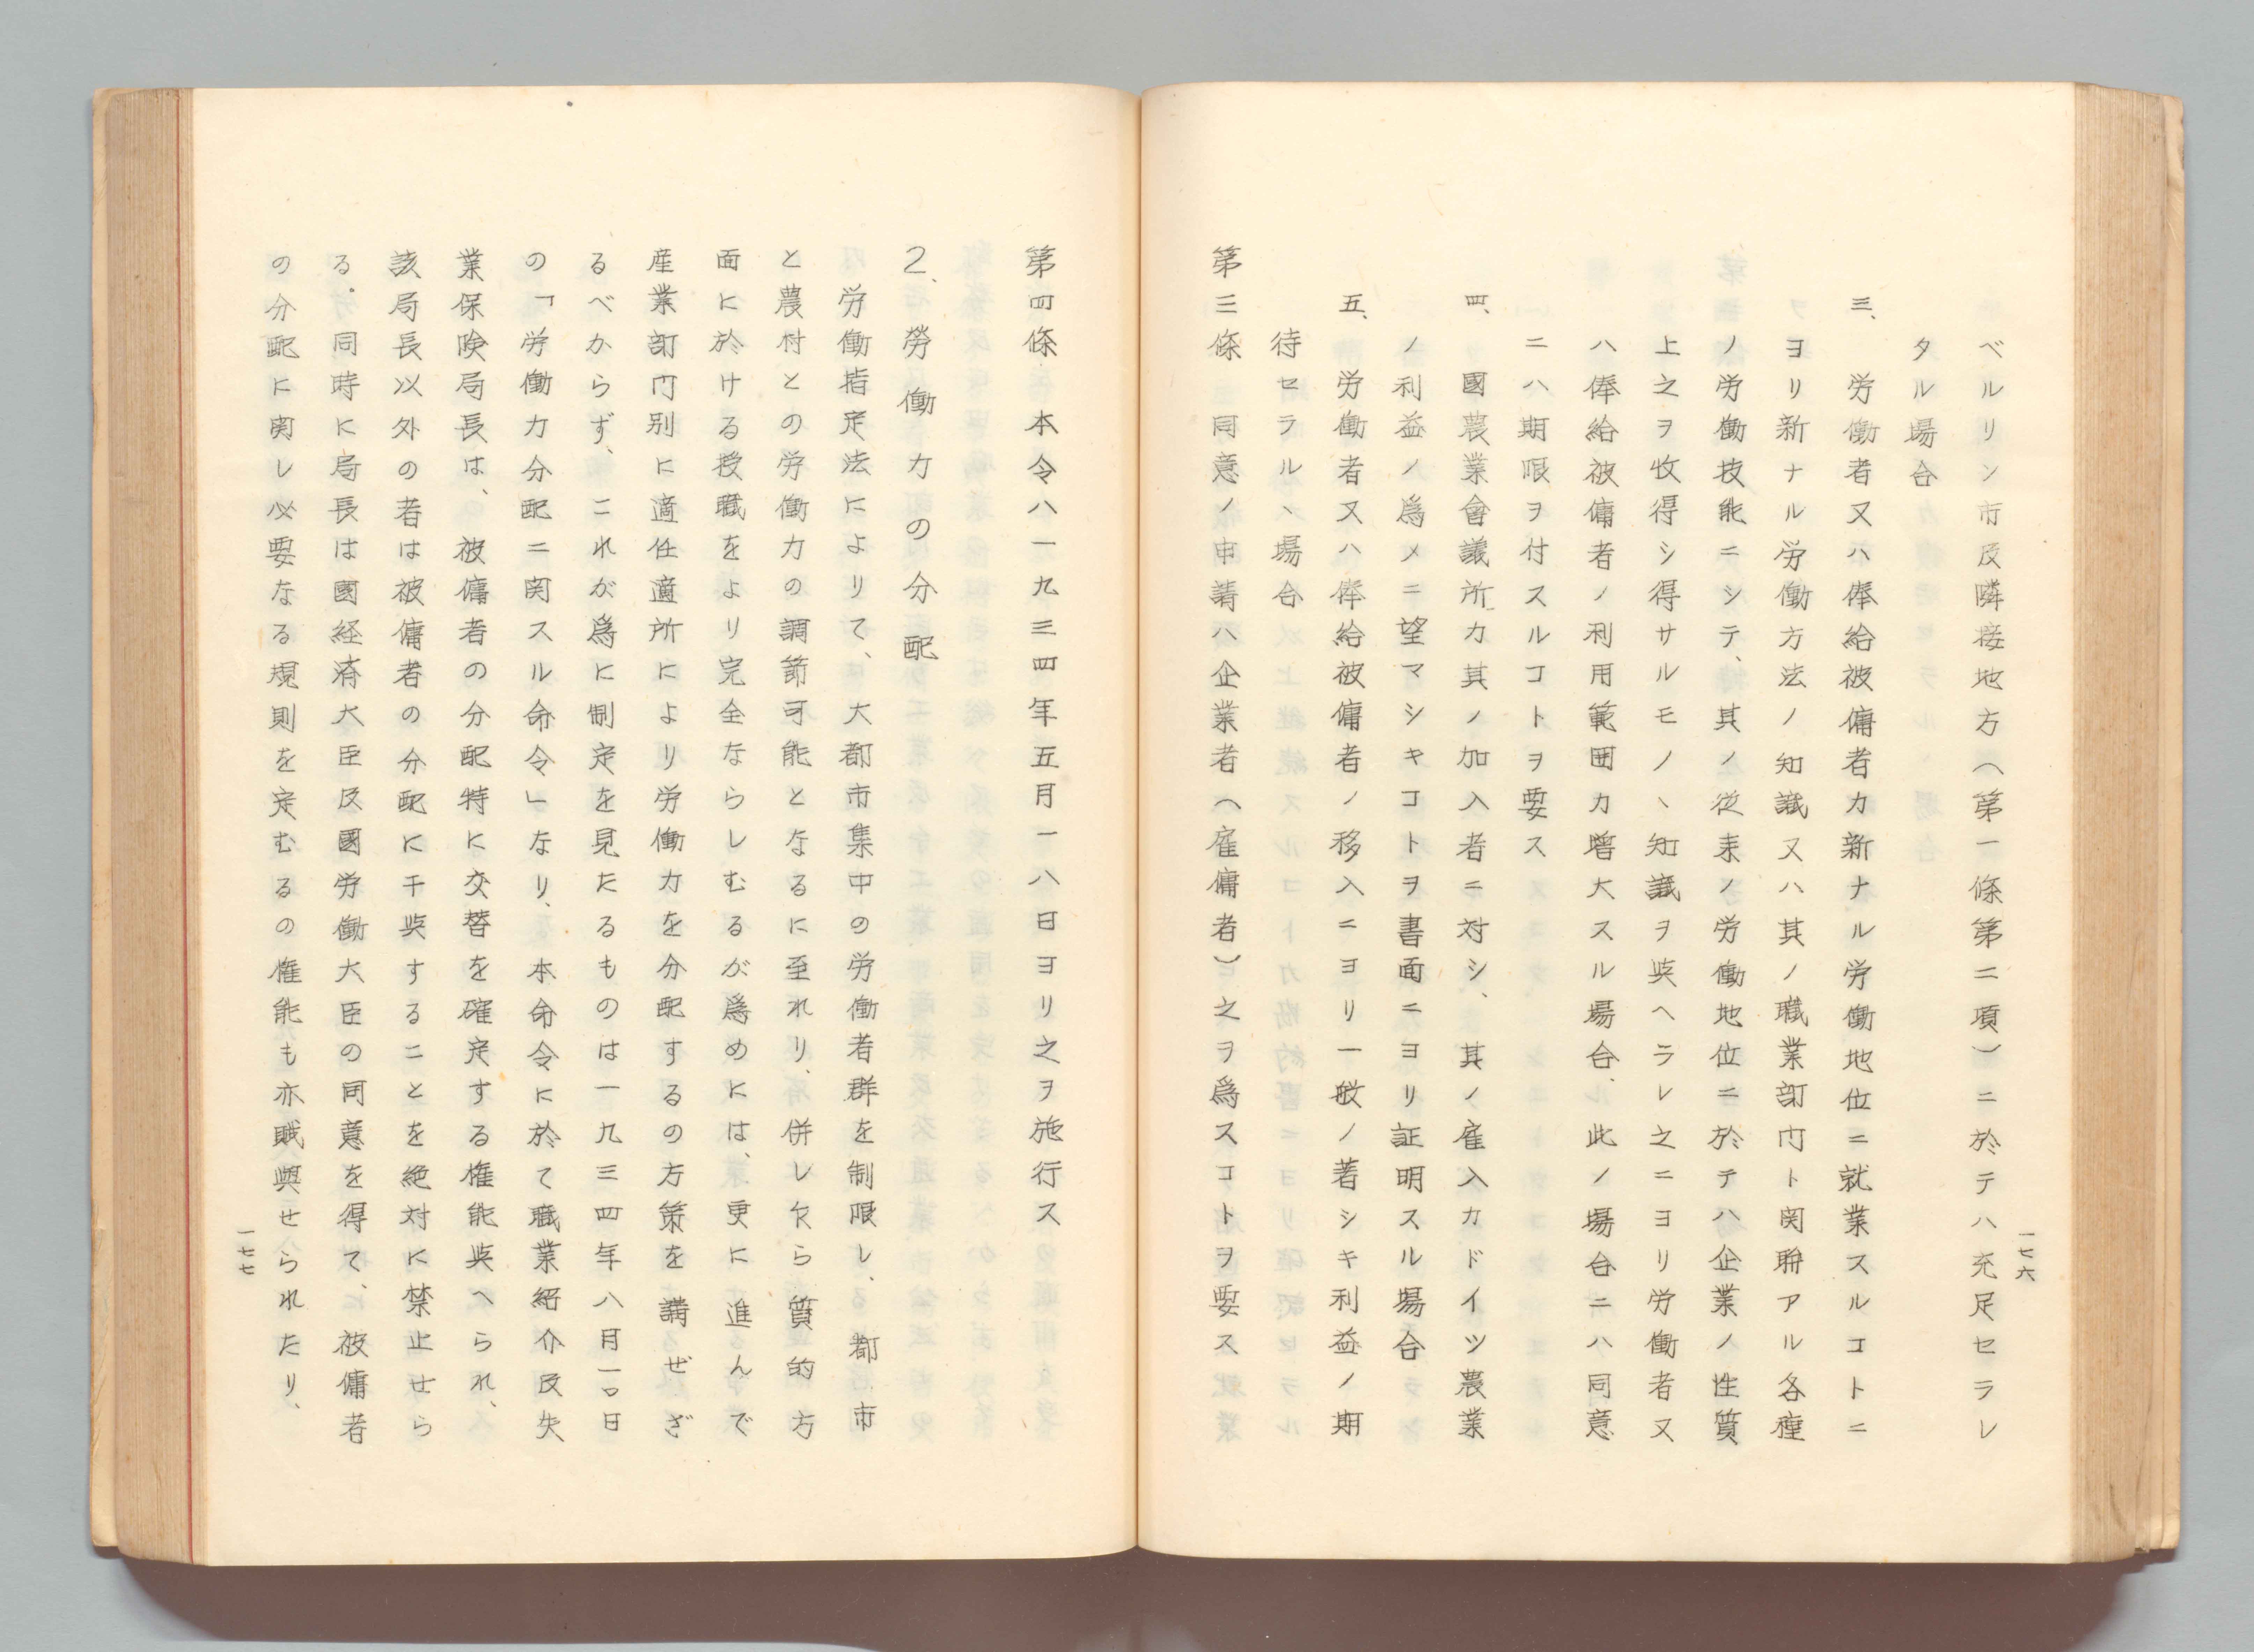 ベルリン市及隣接地方（第一條第二項）ニ於テハ充足セラレ
タル場合
三、労働者又ハ俸給被傭者カ新ナル労働地位ニ就業スルコトニ
ヨリ新ナル労働方法ノ知識又ハ其ノ職業部門ト関聯アル各種
ノ労働技能ニシテ、其ノ従来ノ労働地位ニ於テハ企業ノ性質
上之ヲ收得シ得サルモノヽ知識ヲ与ヘラレ之ニヨリ労働者又
ハ俸給被傭者ノ利用範囲カ増大スル場合、此ノ場合ニハ同意
ニハ期限ヲ付スルコトヲ要ス
四、國農業會議所カ其ノ加入者ニ対シ、其ノ雇入カドイツ農業
ノ利益ノ爲メニ望マシキコトヲ書面ニヨリ証明スル場合
五、労働者又ハ俸給被傭者ノ移入ニヨリ一般ノ著シキ利益ノ期
待セラルヽ場合
第三條　同意ノ申請ハ企業者（雇傭者）之ヲ爲スコトヲ要ス
一七六
第四條　本令ハ一九三四年五月一八日ヨリ之ヲ施行ス
2、勞働力の分配
労働指定法によりて、大都市集中の労働者群を制限し、都市
と農村との労働力の調節可能となるに至れり、併し乍ら質的方
面に於ける授職をより完全ならしむるが爲めには、更に進んで
産業部門別に適任適所により労働力を分配するの方策を講ぜざ
るべからず、これが爲に制定を見たるものは一九三四年八月一〇日
の「労働力分配ニ関スル命令」なり、本命令に於て職業紹介及失
業保険局長は、被傭者の分配特に交替を確定する権能与へられ、
該局長以外の者は被傭者の分配に干与することを絶対に禁止せら
る。同時に局長は國経済大臣及國労働大臣の同意を得て、被傭者
の分配に関し必要なる規則を定むるの権能も亦賦與せられたり、
一七七